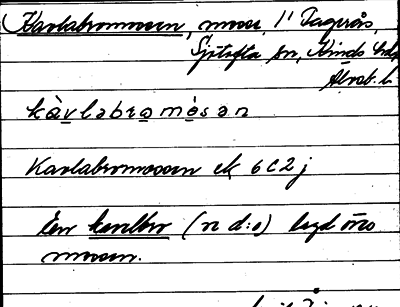 Kavlabromossen, mosse, 1' Dagsås,
Sjötofta sn, Kinds hd,
Älvsb. l.
kàvlabromòsən
Kavlabromossen ek 6C2j
En kavelbro (n d:o) lagd över
mossen.